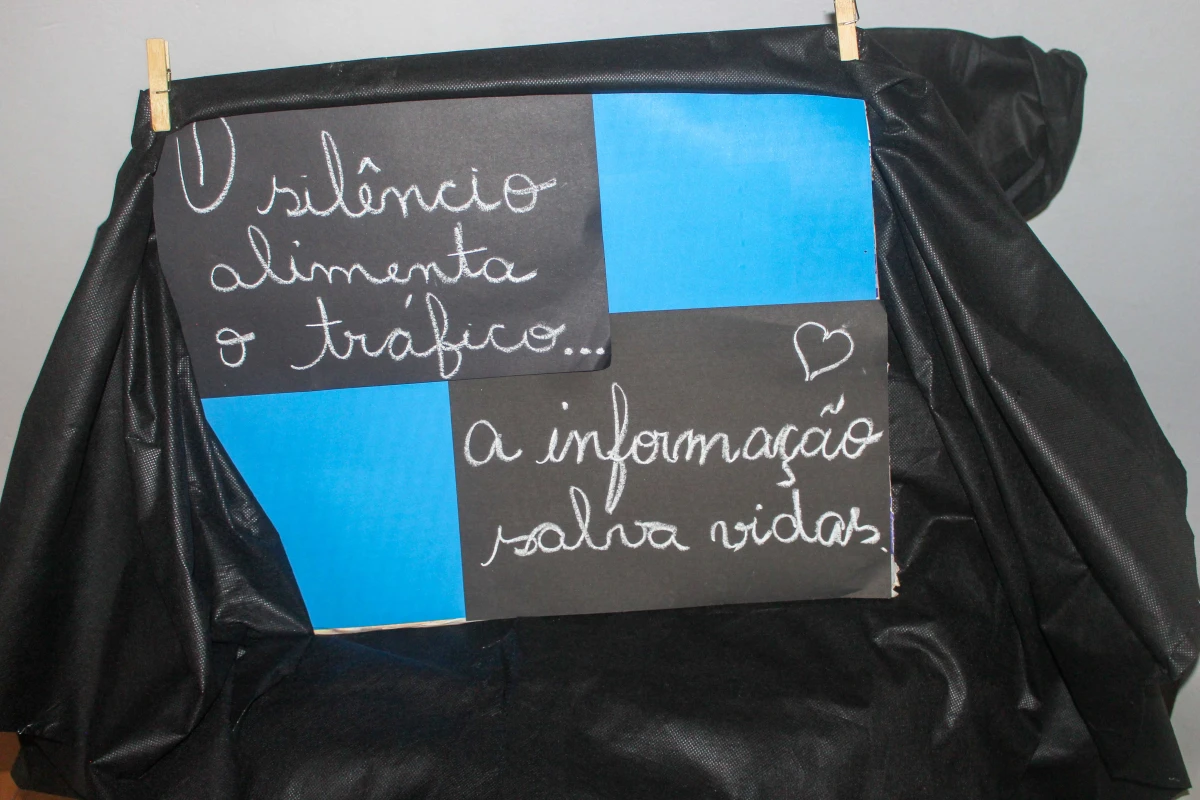 O silêncio
alimenta
o tráfico...
a informação
salva vidas.